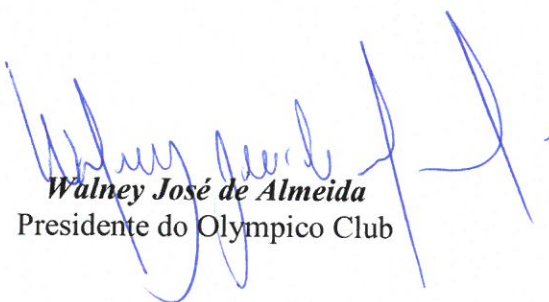 Walney José de Almeida
Presidente do Olympico Club